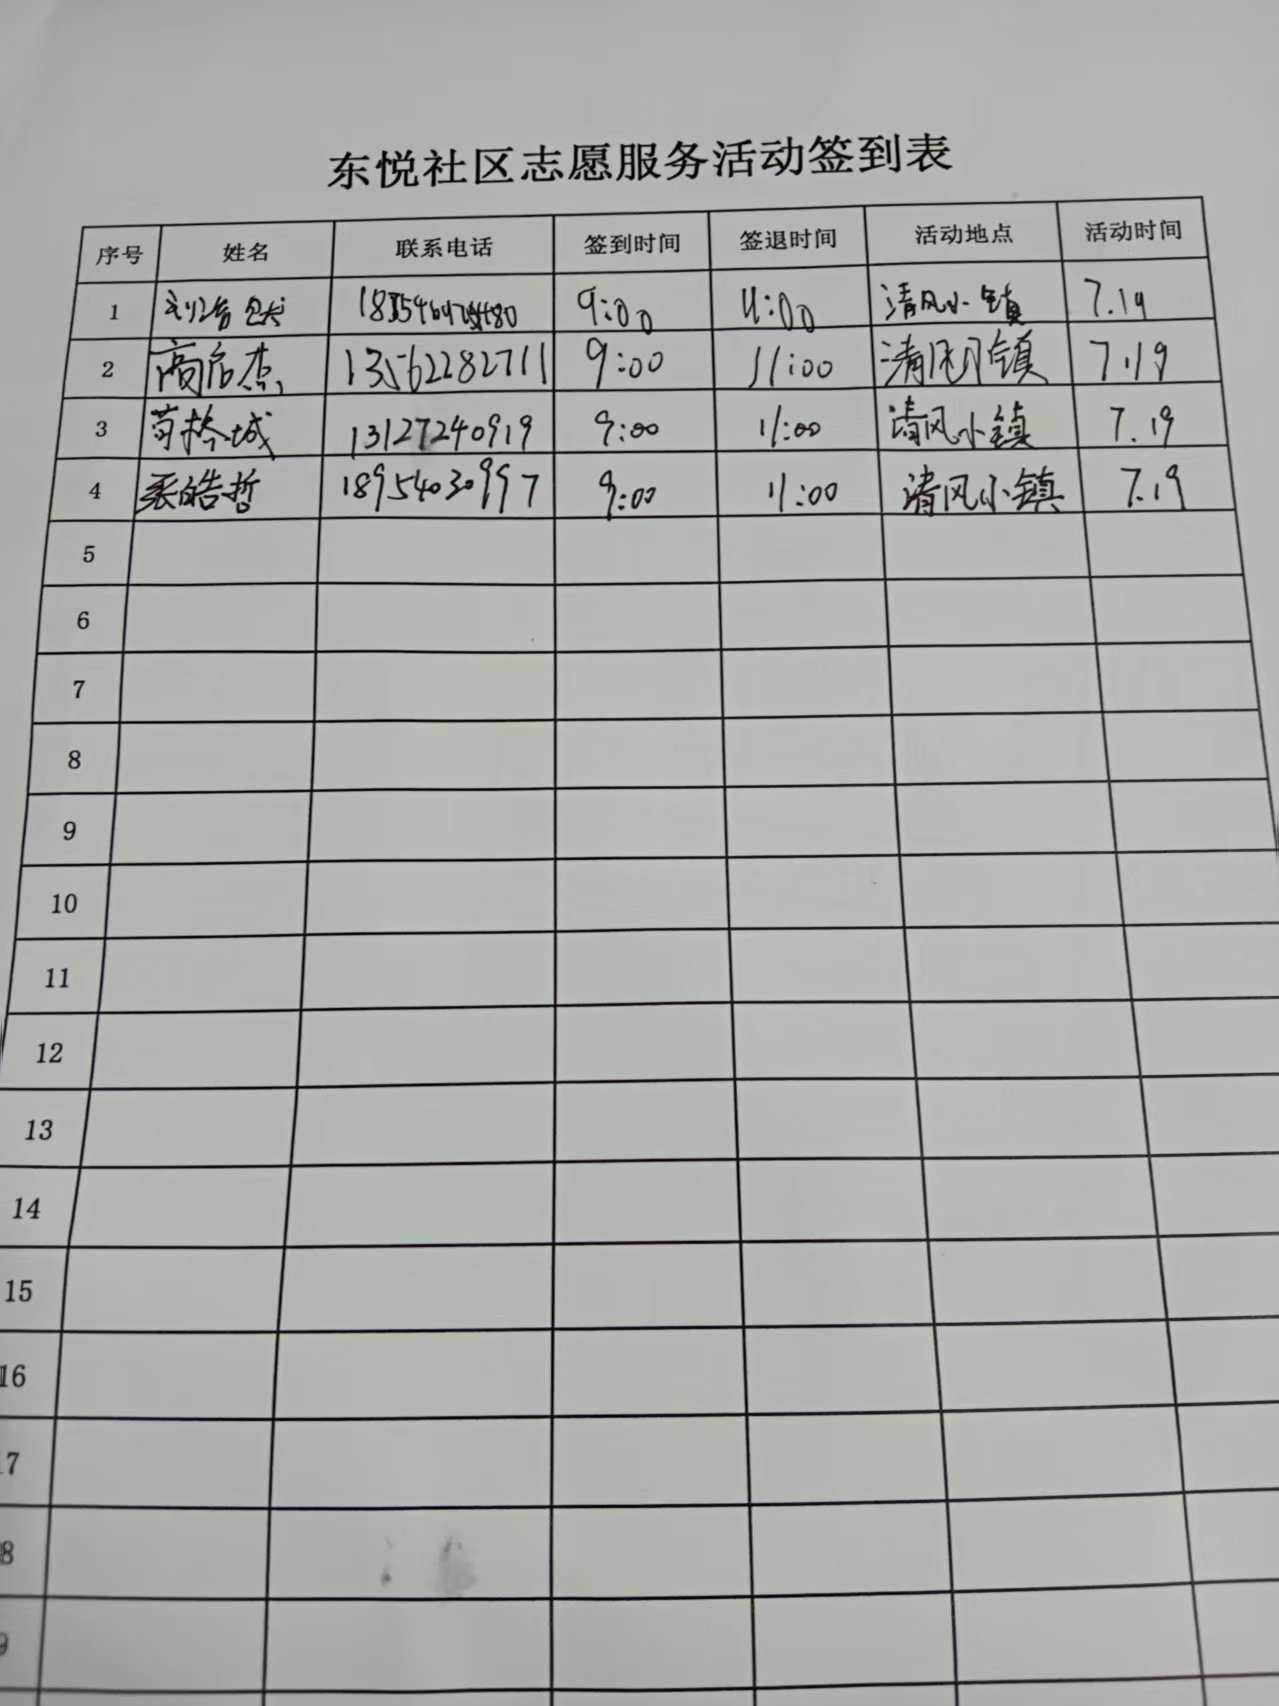 东悦社区志愿服务活动签到表
序号 姓名 联系电话 签到时间 签退时间 活动地点 活动时间
1 9:00 11:00 清风小镇 7.19
2 高启杰 13562282711 9:00 11:00 清风小镇 7.19
3 苟桥城 13127240919 9:00 11:00 清风小镇 7.19
4 皓哲 18954030997 9:00 11:00 清风小镇 7.19
5
6
7
8
9
10
11
12
13
14
15
16
17
8
9